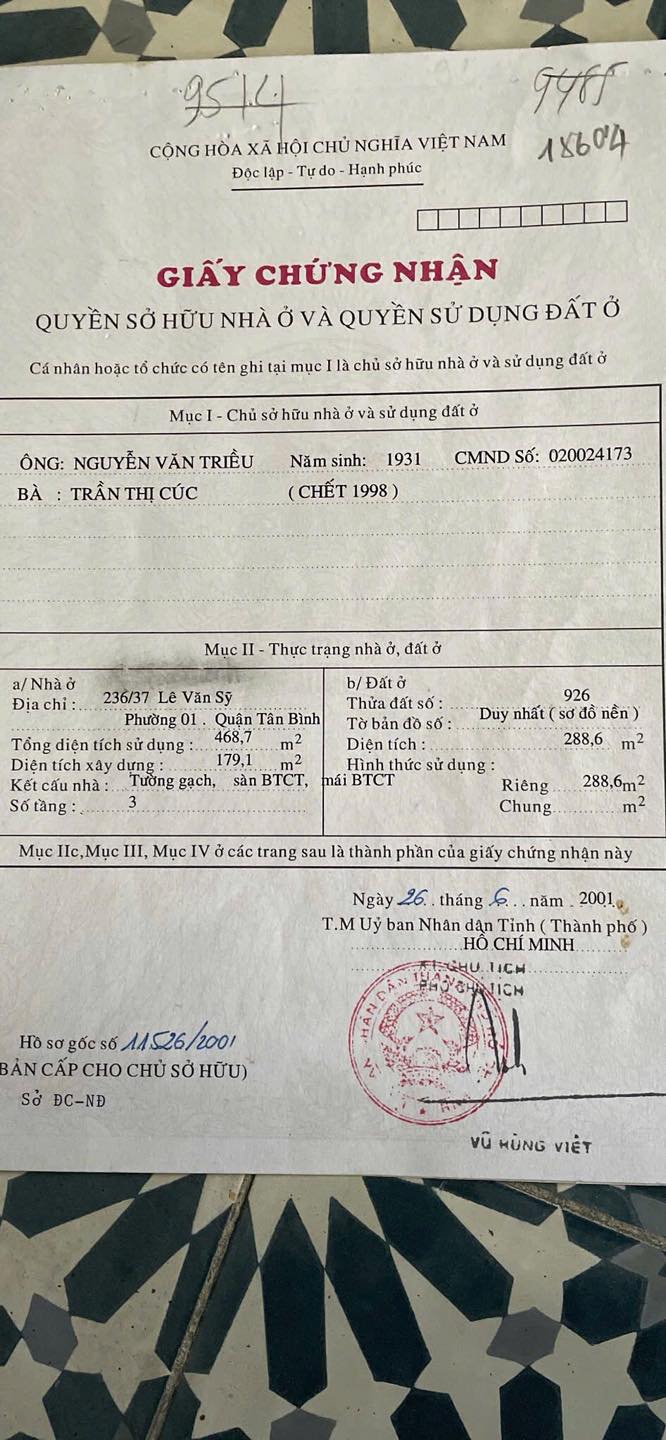 9514
9485
18604
CỘNG HÒA XÃ HỘI CHỦ NGHĨA VIỆT NAM
Độc lập - Tự do - Hạnh phúc
GIẤY CHỨNG NHẬN
QUYỀN SỞ HỮU NHÀ Ở VÀ QUYỀN SỬ DỤNG ĐẤT Ở
Cá nhân hoặc tổ chức có tên ghi tại mục I là chủ sở hữu nhà ở và sử dụng đất ở
Mục I - Chủ sở hữu nhà ở và sử dụng đất ở
ÔNG: NGUYỄN VĂN TRIỀU Năm sinh: 1931 CMND Số: 020024173
BÀ : TRẦN THỊ CÚC ( CHẾT 1998 )
Mục II - Thực trạng nhà ở, đất ở
a/ Nhà ở
Địa chỉ : 236/37 Lê Văn Sỹ
Phường 01 . Quận Tân Bình
Tổng diện tích sử dụng : 468,7 m2
Diện tích xây dựng : 179,1 m2
Kết cấu nhà : Tường gạch, sàn BTCT, mái BTCT
Số tầng : 3
b/ Đất ở
Thửa đất số : 926
Tờ bản đồ số : Duy nhất ( sơ đồ nền )
Diện tích : 288,6 m2
Hình thức sử dụng :
Riêng 288,6m2
Chung m2
Mục IIc,Mục III, Mục IV ở các trang sau là thành phần của giấy chứng nhận này
Ngày 26 tháng 6 năm 2001
T.M Uỷ ban Nhân dân Tỉnh ( Thành phố )
HỒ CHÍ MINH
KT.CHỦ TỊCH
PHÓ CHỦ TỊCH
Hồ sơ gốc số 11526/2001
BẢN CẤP CHO CHỦ SỞ HỮU)
Sở ĐC-NĐ
VŨ HÙNG VIỆT